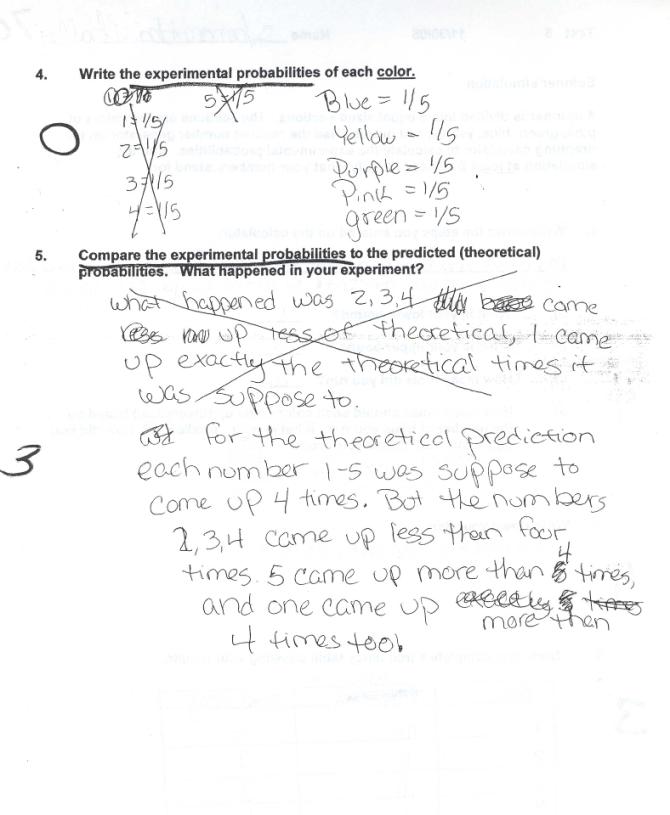 4. Write the experimental probabilities of each color.
5=1/5 Blue = 1/5
1=1/5 Yellow = 1/5
2=1/5 Purple = 1/5
3=1/5 Pink = 1/5
4=1/5 green = 1/5
5. Compare the experimental probabilities to the predicted (theoretical)
probabilities. What happened in your experiment?
what happened was 2,3,4 came
up less of theoretical, 1 came
up exactly the theoretical times it
was suppose to.
for the theoretical prediction
3 each number 1-5 was suppose to
come up 4 times. But the numbers
2,3,4 came up less than four
times. 5 came up more than 4 times,
and one came up
more then
4 times too.